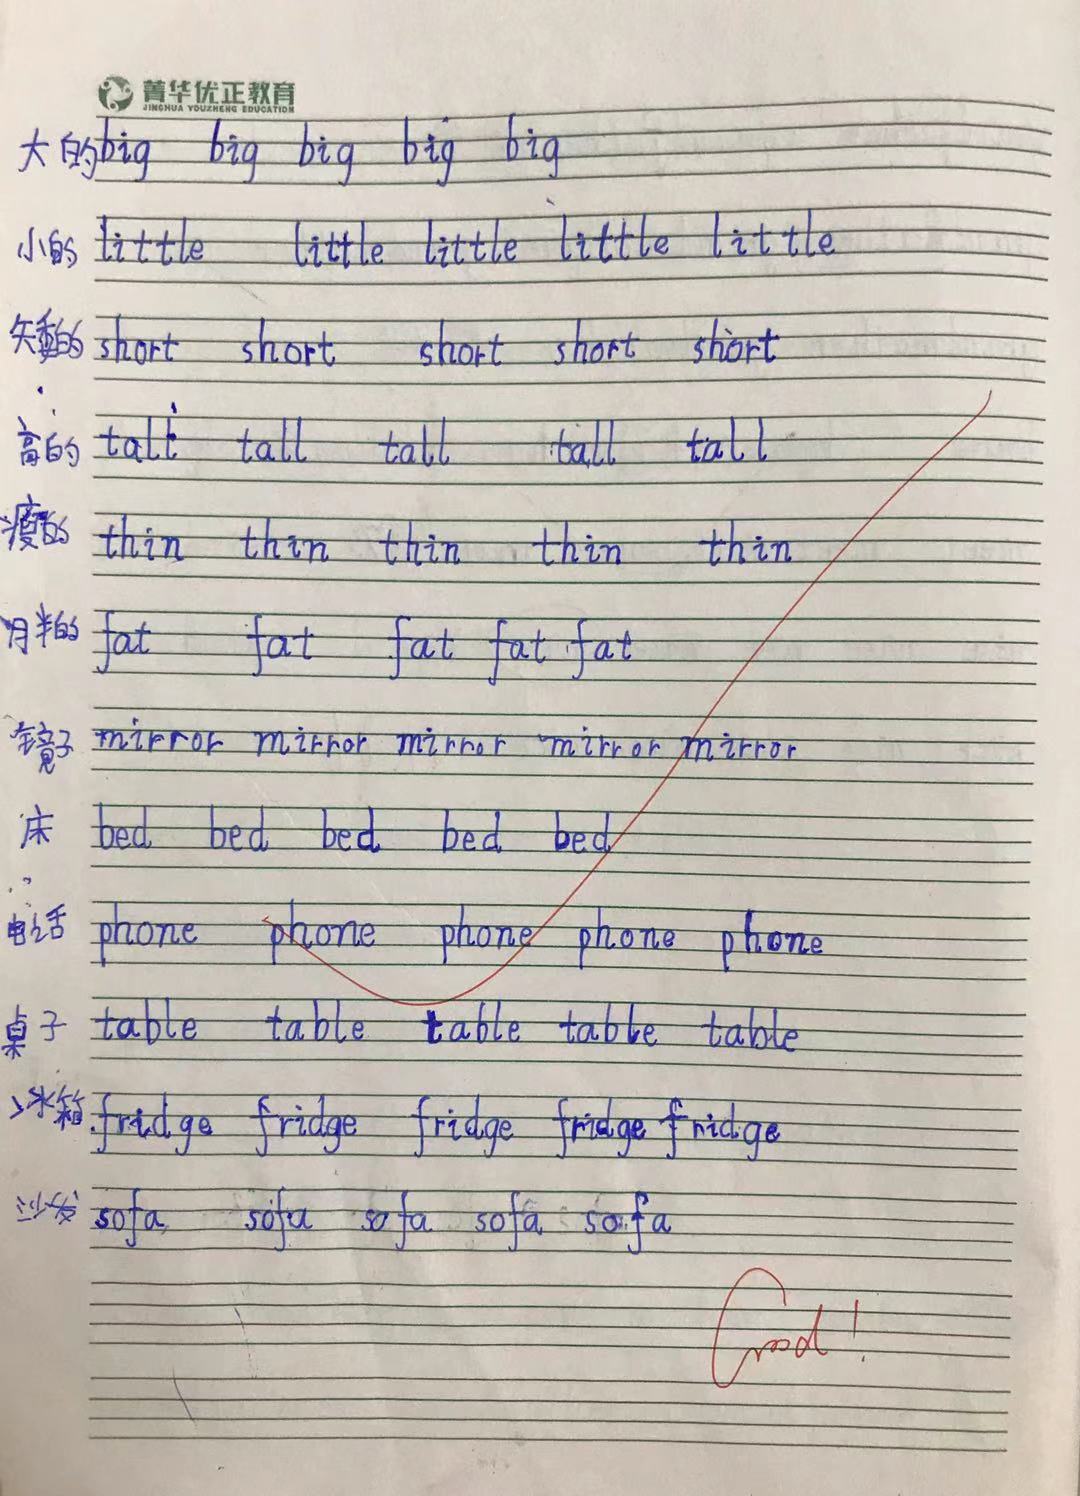 菁华优正教育
JINGHUA YOUZHENG EDUCATION
大的 big big big big big
小的 little little little little little
矮的 short short short short short
高的 tall tall tall tall tall
瘦的 thin thin thin thin thin
胖的 fat fat fat fat fat
镜子 mirror mirror mirror mirror mirror
床 bed bed bed bed bed
电话 phone phone phone phone phone
桌子 table table table table table
冰箱 fridge fridge fridge fridge fridge
沙发 sofa sofa sofa sofa sofa
Good!